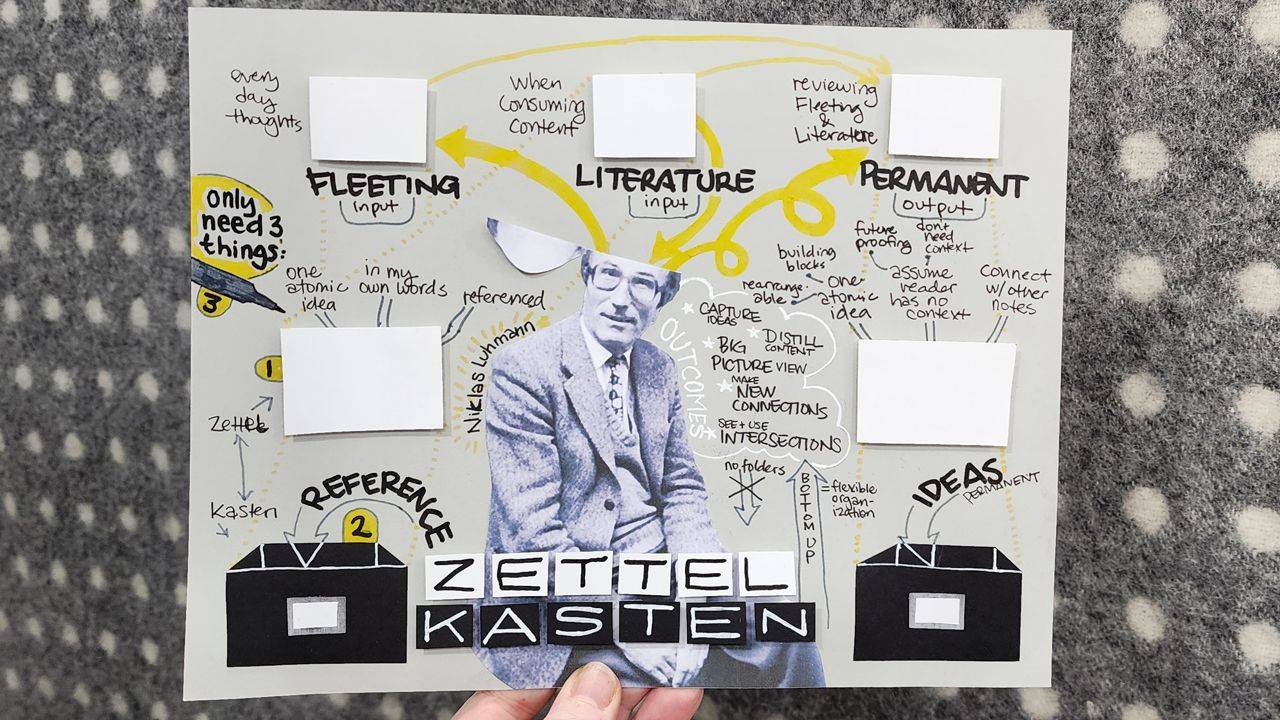 every
day
thoughts
When
consuming
content
reviewing
Fleeting
&
Literature
FLEETING
input
LITERATURE
input
PERMANENT
output
only
need 3
things:
3
one
atomic
idea
in my
own words
referenced
1
Zettel
Kasten
REFERENCE
2
Niklas Luhmann
OUTCOMES
CAPTURE
IDEAS
DISTILL
CONTENT
BIG
PICTURE VIEW
MAKE
NEW
CONNECTIONS
SEE + USE
INTERSECTIONS
building
blocks
rearrange-
able
one
atomic
idea
future
proofing
dont
need
context
assume
reader
has no
context
connect
w/other
notes
no folders
BOTTOM UP
= flexible
organ-
ization
IDEAS
PERMANENT
ZETTEL
KASTEN